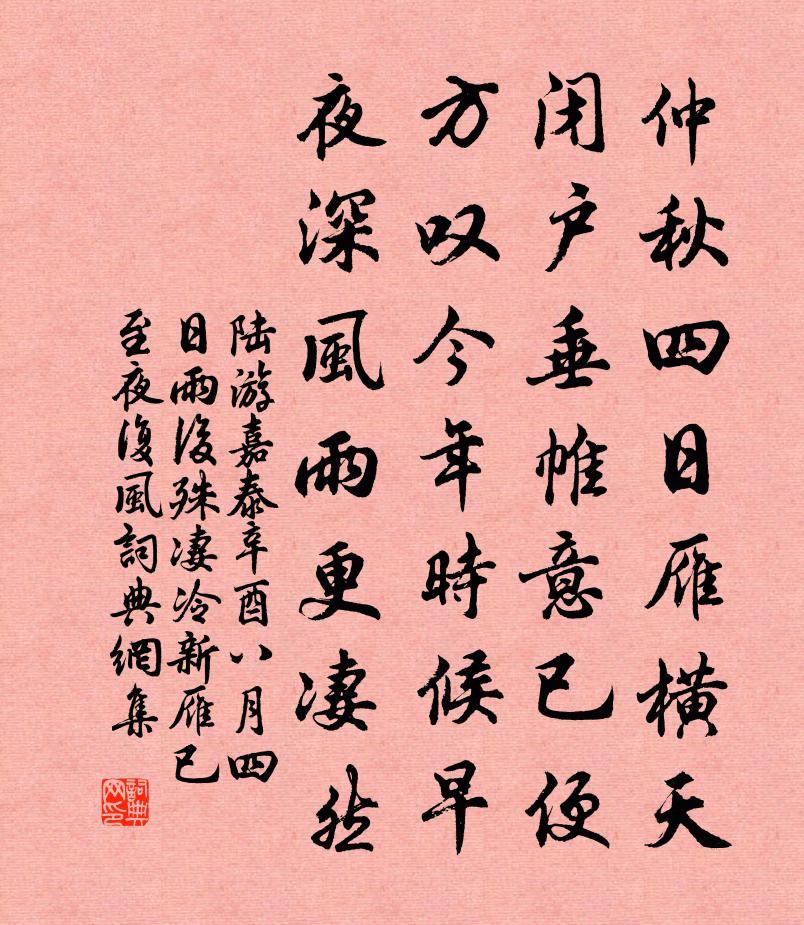 仲秋四日雁横天
闭户垂帷意已便
方叹今年時候早
夜深風雨更凄然
陆游嘉泰辛酉八月四
日雨後殊凄冷新雁已
至夜復風詞典網集
詞典网印